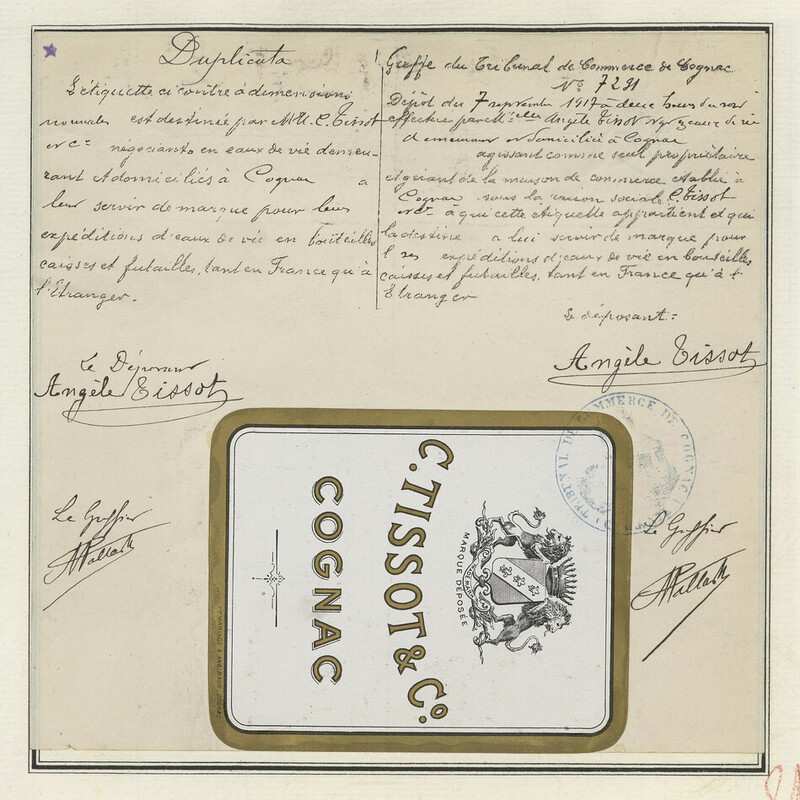 Duplicata
L'étiquette ci contre à dimensions
nouvelles est destinée par MM. C. Tissot
et Cie négociants en eaux de vie demeu-
rant et domiciliés à Cognac a
leur servir de marque pour leurs
expéditions d'eaux de vie en bouteilles
caisses et futailles, tant en France qu'à
l'Etranger.
Le Déposant
Angèle Tissot
Le Greffier
Greffe du Tribunal de Commerce de Cognac
No 7291
Dépôt du 7 septembre 1917 à deux heures du soir
effectué par Melle Angèle Tissot Ngte eaux de vie
demeurant et domiciliée à Cognac
agissant comme seul propriétaire
et gérant de la maison de commerce établie à
Cognac sous la raison sociale C. Tissot
et Cie à qui cette étiquette appartient et qui
la destine a lui servir de marque pour
ses expéditions d'eaux de vie en bouteilles
caisses et futailles, tant en France qu'à l'
Etranger
Le déposant:
Angèle Tissot
Le Greffier
TRIBUNAL DE COMMERCE DE COGNAC
MARQUE DEPOSÉE
C. TISSOT & Co.
COGNAC